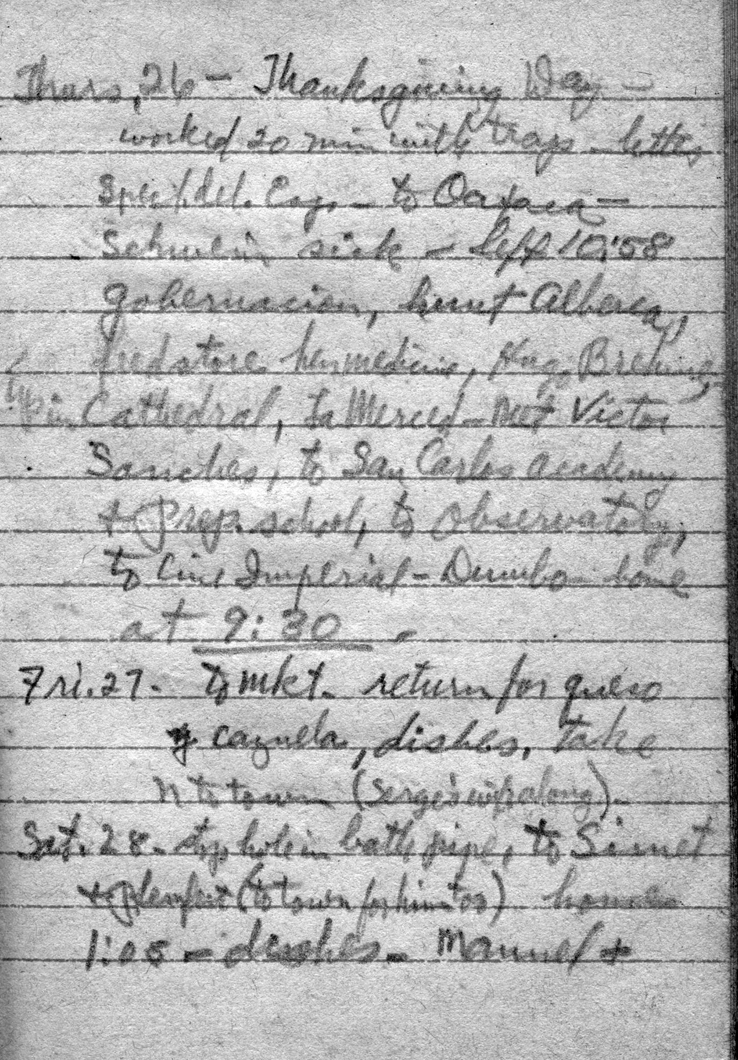 Thurs, 26 - Thanksgiving Day -
worked 20 min with trays - letter
Spec/del. Esq. - to Oaxaca -
sick - left 10:58
gobernacion, hunt Alberca,
medicine, Hugo Brehme,
Cathedral, La Merced - met Victor
Sanches, to San Carlos academy
+ Prep. school, to observatory,
to Cine Imperial - Dumbo - home
at 9:30 -
Fri. 27 - to mkt. return for queso
y cazuela, dishes, take
N to town (Serge's wife along) -
Sat. 28 - stop hole in bath pipe, to Simet
+ (to town for him too) home
1:05 - dishes - Manuel +